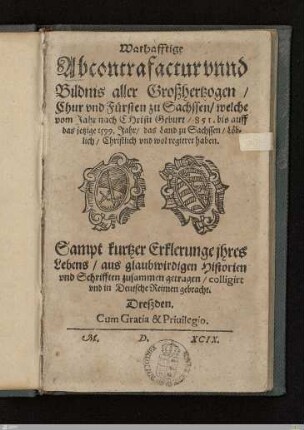 Warhafftige
Abcontrafactur vnnd
Bildnis aller Großhertzogen /
Chur vnd Fürsten zu Sachssen / welche
vom Jahr nach Christi Geburt / 851. bis auff
das jetzige 1599. Jahr / das Land zu Sachssen / Löb-
lich / Christlich vnd wol regiret haben.
Sampt kurtzer Erklerunge jhres
Lebens / aus glaubwirdigen Historien
vnd Schrifften zusammen getragen / colligirt
vnd in Deutsche Reimen gebracht.
Dreßden.
Cum Gratia & Priuilegio.
M. D. XCIX.